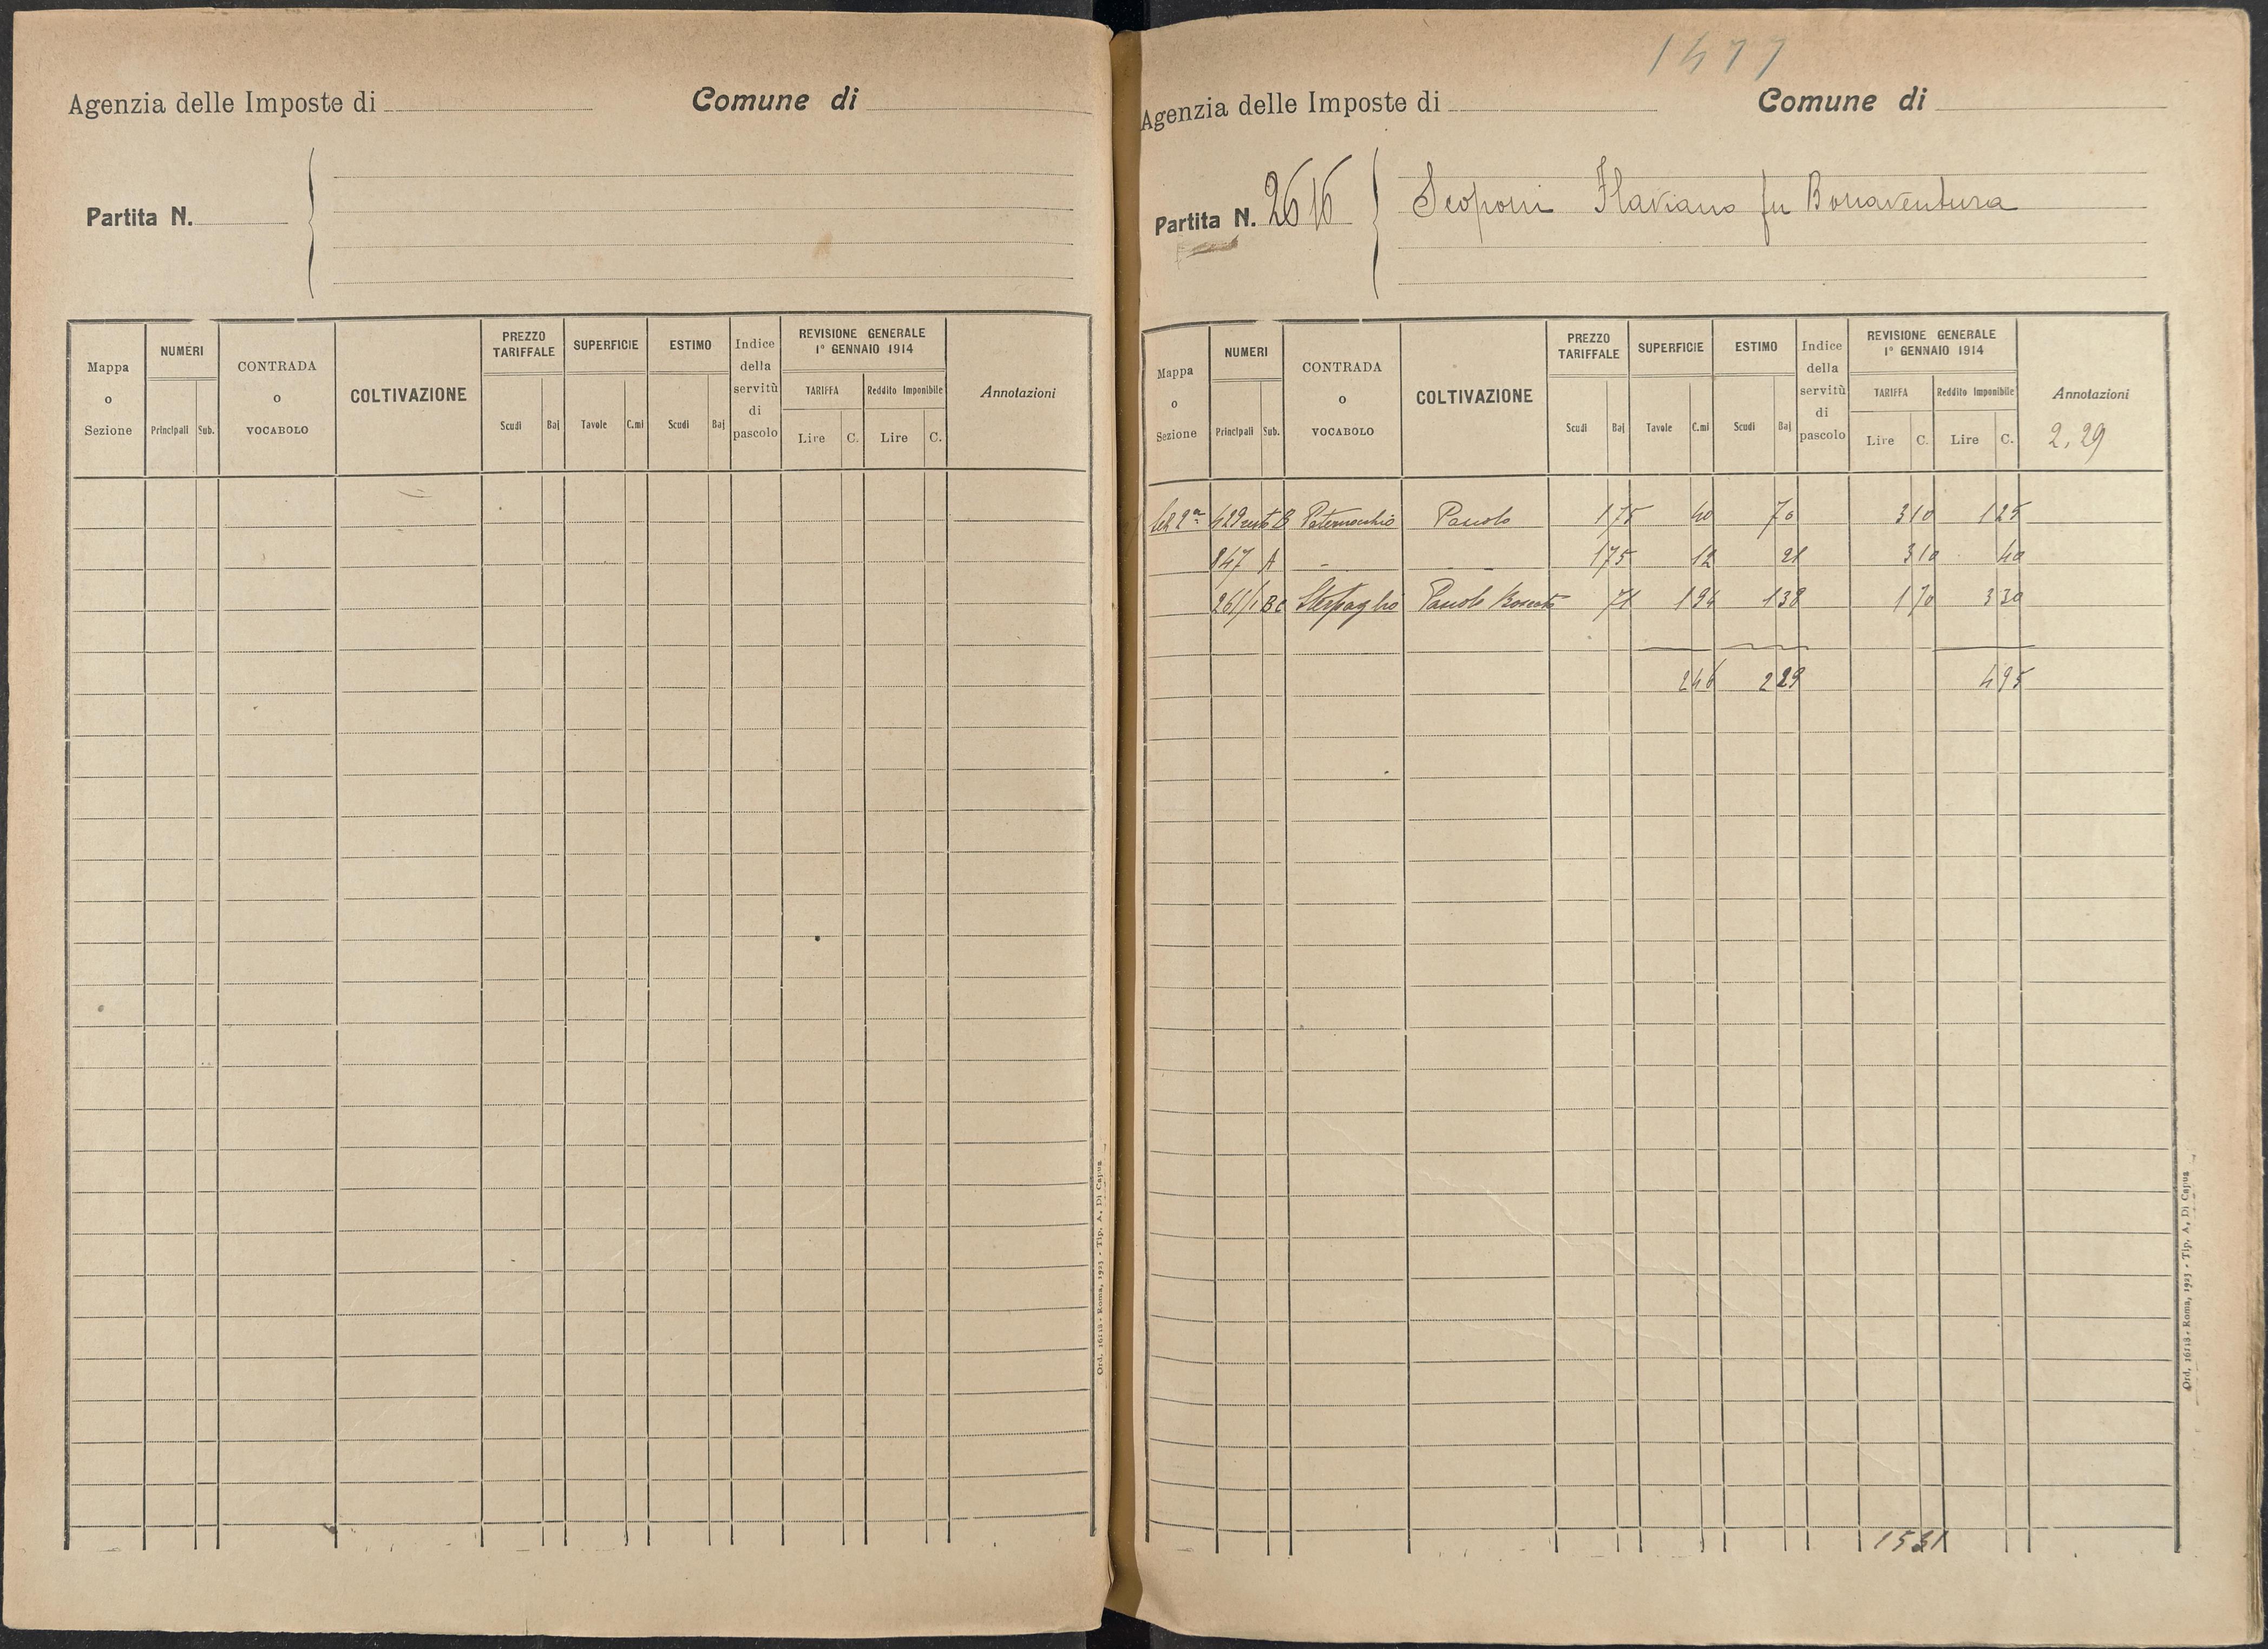 Agenzia delle Imposte di Comune di
Partita N.
Mappa o Sezione NUMERI Principali Sub. CONTRADA O VOCABOLO COLTIVAZIONE PREZZO TARIFFALE Scudi Baj SUPERFICIE Tavole C.mi ESTIMO Scudi Baj Indice della servitù di pascolo REVISIONE GENERALE 1° GENNAIO 1914 TARIFFA Lire C. Reddito Imponibile Lire C. Annotazioni
Ord. 16118 - Roma, 1923 - Tip. A. Di Capua
1477
Agenzia delle Imposte di Comune di
Partita N. 2616 Scoponi Flaviano fu Bonaventura
Mappa o Sezione NUMERI Principali Sub. CONTRADA O VOCABOLO COLTIVAZIONE PREZZO TARIFFALE Scudi Baj SUPERFICIE Tavole C.mi ESTIMO Scudi Baj Indice della servitù di pascolo REVISIONE GENERALE 1° GENNAIO 1914 TARIFFA Lire C. Reddito Imponibile Lire C. Annotazioni
2,29
2ª 429 resto B Paternocchio Pascolo 175 40 70 310 125
847 A - - 175 12 21 310 40
261/1 BC Sterpaglio Pascolo Boscato 71 194 138 170 330
246 229 495
1531
Ord. 16118 - Roma, 1923 - Tip. A. Di Capua